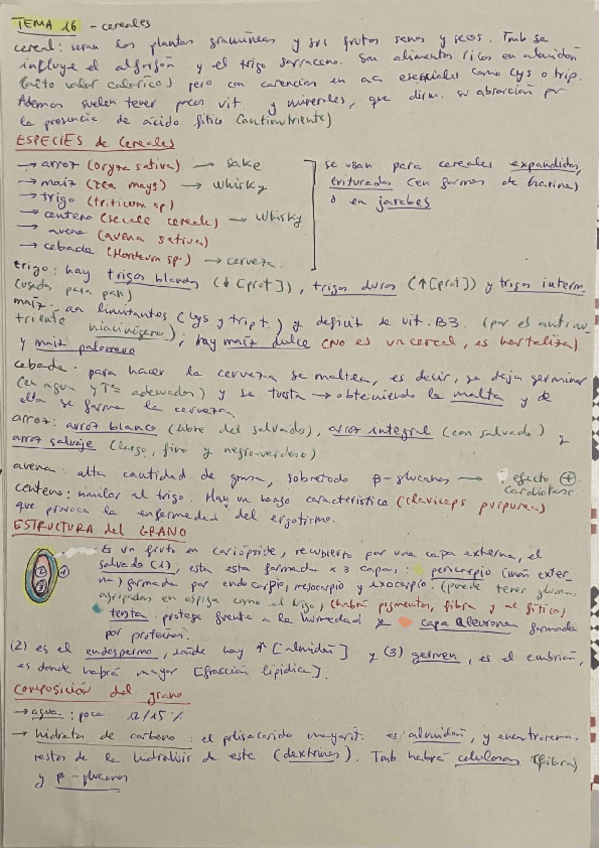 TEMA 16 - cereales
cereal: seran las plantas gramineas y sus frutos senos y secos. Tmb se
influye el alforfón y el trigo sarraceno. Son alimentos ricos en almidón
(alto valor calórico) pero con carencias en aa esenciales como Lys o trip.
Ademas suelen tener pocas vit. y minerales, que dism. su absorción por
la presencia de ácido fítico (antinutriente)
ESPECIES de Cereales
→ arroz (oryza sativa) → sake
→ maiz (zea mays) → whisky
→ trigo (triticum sp)
→ centeno (secale cereale) → whisky
→ avena (avena sativa)
→ cebada (Hordeum sp.) → cerveza.
se usan para cereales expandidos,
triturados (en formas de harina)
o en jarabes
trigo: hay trigos blandos (↓ [prot]), trigos duros (↑[prot]) y trigos interm.
(usada para pan)
maiz: aa limitantes (Lys y tript.) y deficit de vit. B3. (por el antinu-
triente niacinógeno); hay maiz dulce (NO es un cereal, es hortaliza)
y maiz palomero
cebada: para hacer la cerveza se maltea, es decir, se deja germinar
(en agua y Tª adecuados) y se tuesta → obteniendo la malta y de
ella se forma la cerveza
arroz: arroz blanco (libre del salvado), arroz integral (con salvado) y
arroz salvaje (largo, fino y negro-verdoso)
avena: alta cantidad de grasa, sobretodo β-glucanos → efecto ⊕
cardiotosr.
centeno: similar al trigo. Hay un hongo caracteristico (claviceps purpurea)
que provoca la enfermedad del ergotismo.
ESTRUCTURA del GRANO
Es un fruto en cariópside, recubierto por una capa externa, el
salvado (1), esta esta formada x 3 capas: pericarpio (más exter-
no) formada por endocarpio, mesocarpio y exocarpio. (puede tener glumas
agrupadas en espiga como el trigo, (habrá pigmentos, fibra y ac fítico)
testa protege frente a la humedad y capa aleurona formada
por proteinas.
(1) (2) (3)
(2) es el endospermo, donde hay ↑ [almidón] y (3) germen, es el embrión,
es donde habrá mayor [fracción lipídica].
Composición del grano
→ agua: poca 12/15 %
→ hidratos de carbono: el polisacarido mayorit. es almidón, y encontraremos
restos de la hidrólisis de este (dextrinas). Tmb habrá celulosas (fibra)
y β-glucanos